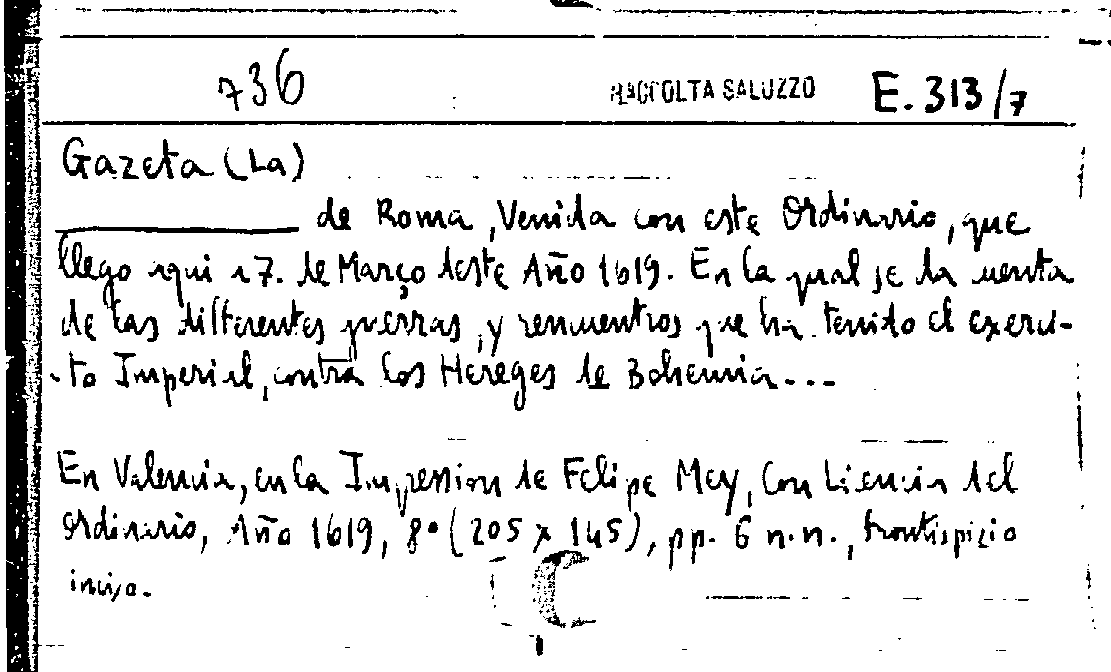 736 RACCOLTA SALUZZO E. 313/7
Gazeta (La)
de Roma, Venida con este Ordinario, que
llego aqui a 7. de Março deste Año 1619. En la qual se da cuenta
de las differentes guerras, y rencuentros que ha tenido el exerci-
-to Imperial, contra los Hereges de Bohemia...
En Valencia, en la Impression de Felipe Mey, Con Licencia del
Ordinario, Año 1619, 8° (205 x 145), pp. 6 n.n., frontispizio
inciso.